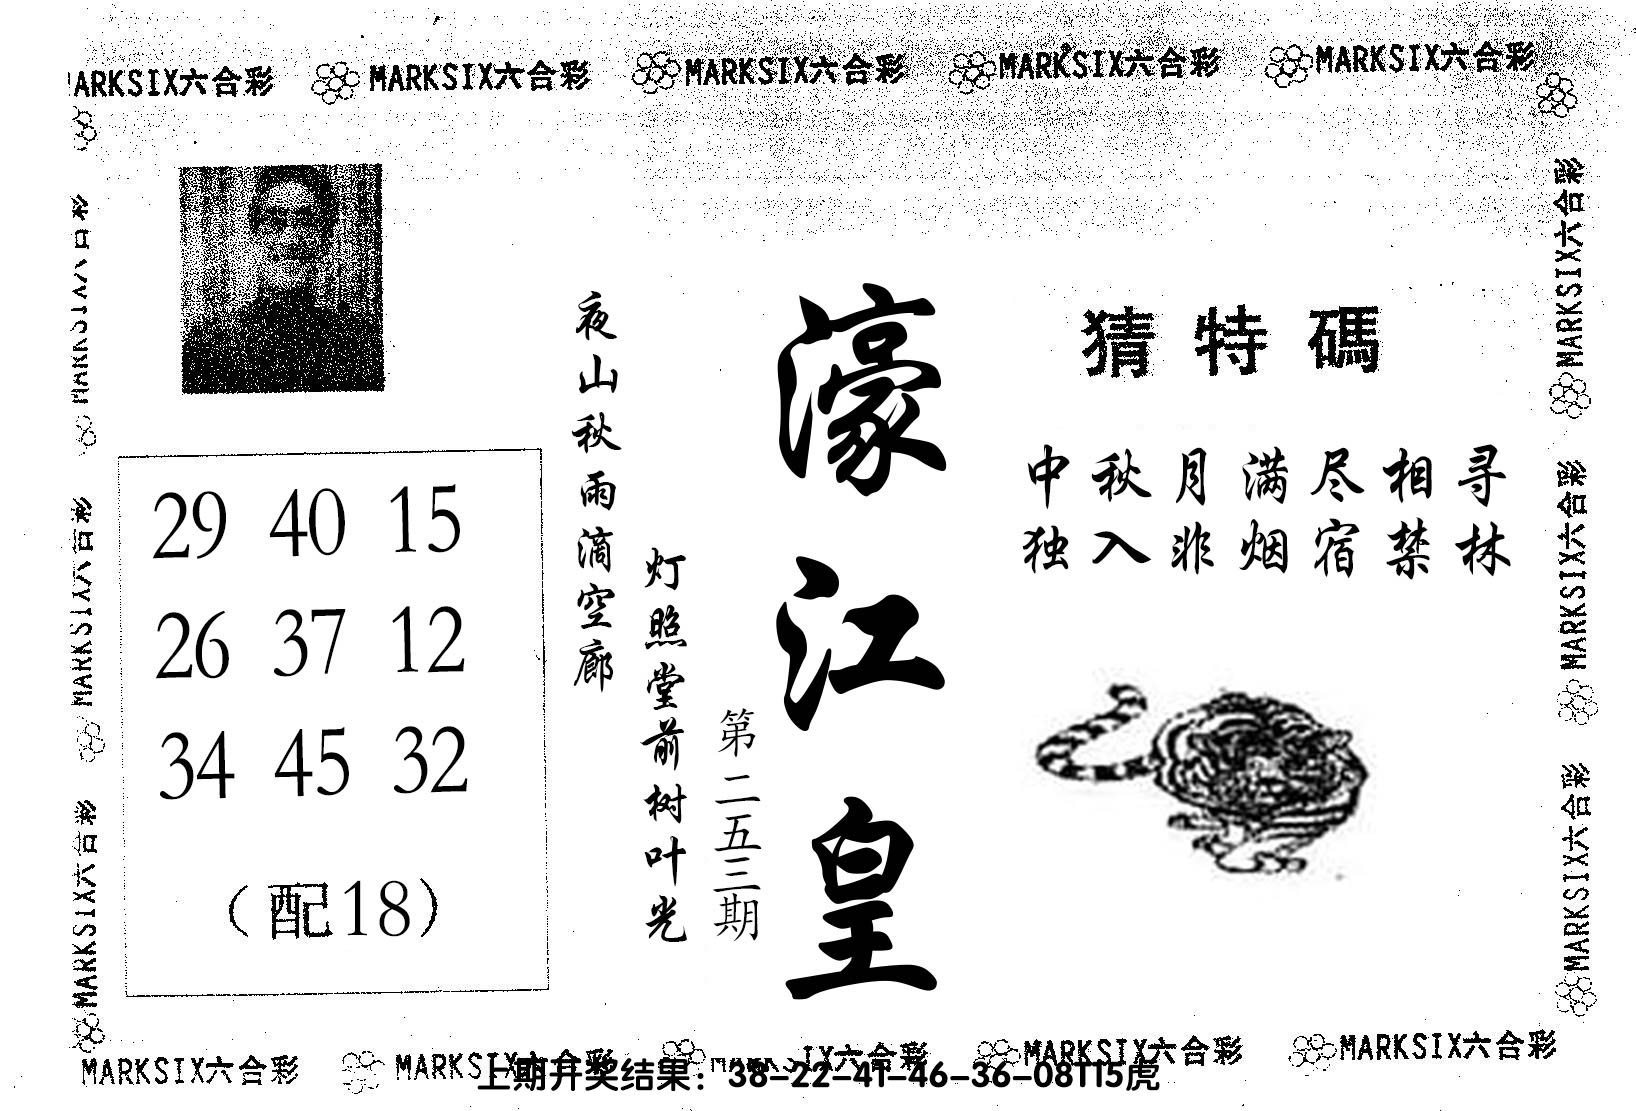 MARKSIX六合彩 MARKSIX六合彩 MARKSIX六合彩 MARKSIX六合彩 MARKSIX六合彩
猜特碼
中秋月满尽相寻
独入非烟宿禁林
濠江皇
第二五三期
夜山秋雨滴空廊
灯照堂前树叶光
29 40 15
26 37 12
34 45 32
（配18）
MARKSIX六合彩
MARKSIX六合彩
MARKSIX六合彩
MARKSIX六合彩
MARKSIX六合彩
MARKSIX六合彩
MARKSIX六合彩 MARKSIX六合彩 MARKSIX六合彩 MARKSIX六合彩 MARKSIX六合彩
上期开奖结果：38-22-41-46-36-08T15虎